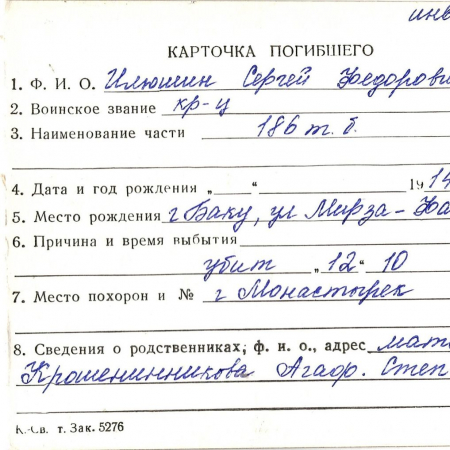 инв
КАРТОЧКА ПОГИБШЕГО
1. Ф. И. О. Илюшин Сергей Федорови
2. Воинское звание кр-ц
3. Наименование части 186 т. б.
4. Дата и год рождения „ “ 1914
5. Место рождения г Баку, ул Мирза-
6. Причина и время выбытия
убит „12“ 10
7. Место похорон и № г Монастырек
8. Сведения о родственниках, ф. и. о., адрес мат
Крошенинникова Агаф. Степ
К.-Св. т. Зак. 5276